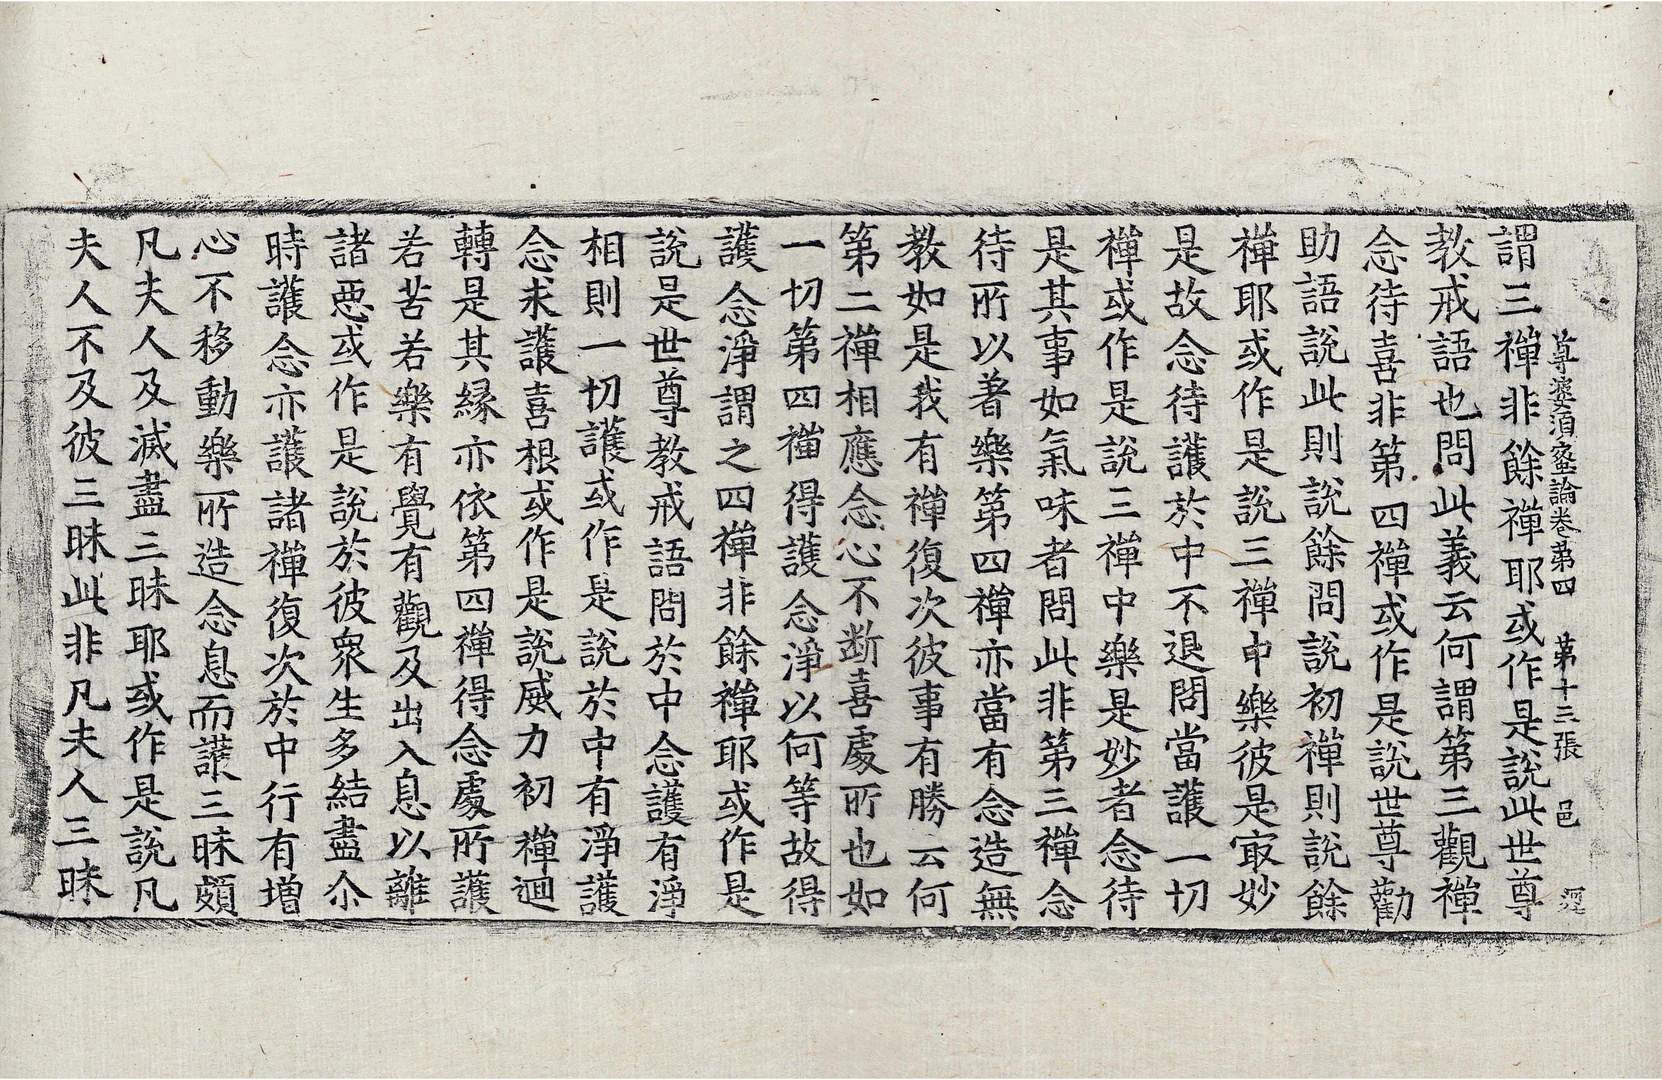 尊婆須蜜論卷第四　第十三張　邑
謂三禪非餘禪耶或作是說此世尊
教戒語也問此義云何謂第三觀禪
念待喜非第四禪或作是說世尊勸
助語說此則說餘問說初禪則說餘
禪耶或作是說三禪中樂彼是㝡妙
是故念待護於中不退問當護一切
禪或作是說三禪中樂是妙者念待
是其事如氣味者問此非第三禪念
待所以著樂第四禪亦當有念造無
教如是我有禪復次彼事有勝云何
第二禪相應念心不断喜處所也如
一切第四禪得護念淨以何等故得
護念淨謂之四禪非餘禪耶或作是
說是世尊教戒語問於中念護有淨
相則一切護或作是說於中有淨護
念求護喜根或作是說威力初禪迴
轉是其緣亦依第四禪得念處所護
若苦若樂有覺有觀及出入息以離
諸惡或作是說於彼衆生多結盡尒
時護念亦護諸禪復次於中行有增
心不移動樂所造念息而護三昧頗
凡夫人及滅盡三昧耶或作是說凡
夫人不及彼三昧此非凡夫人三昧